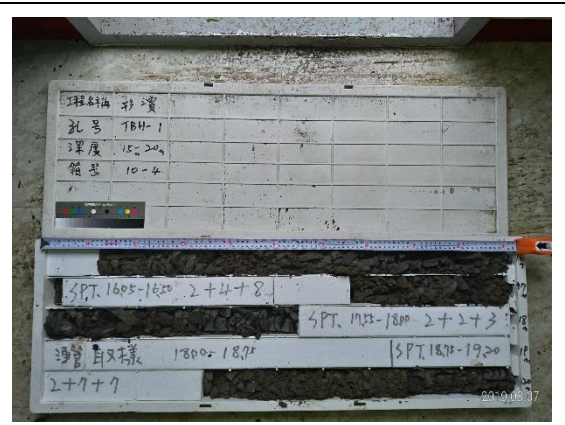 工程名稱 彰濱
孔号 TBH-1
深度 15m-20m
箱号 10-4
SPT. 16.05-16.50 2+4+8
SPT. 17.55-18.00 2+2+3
薄管取樣 18.00-18.75 SPT. 18.75-19.20
2+7+7
2019.08.07